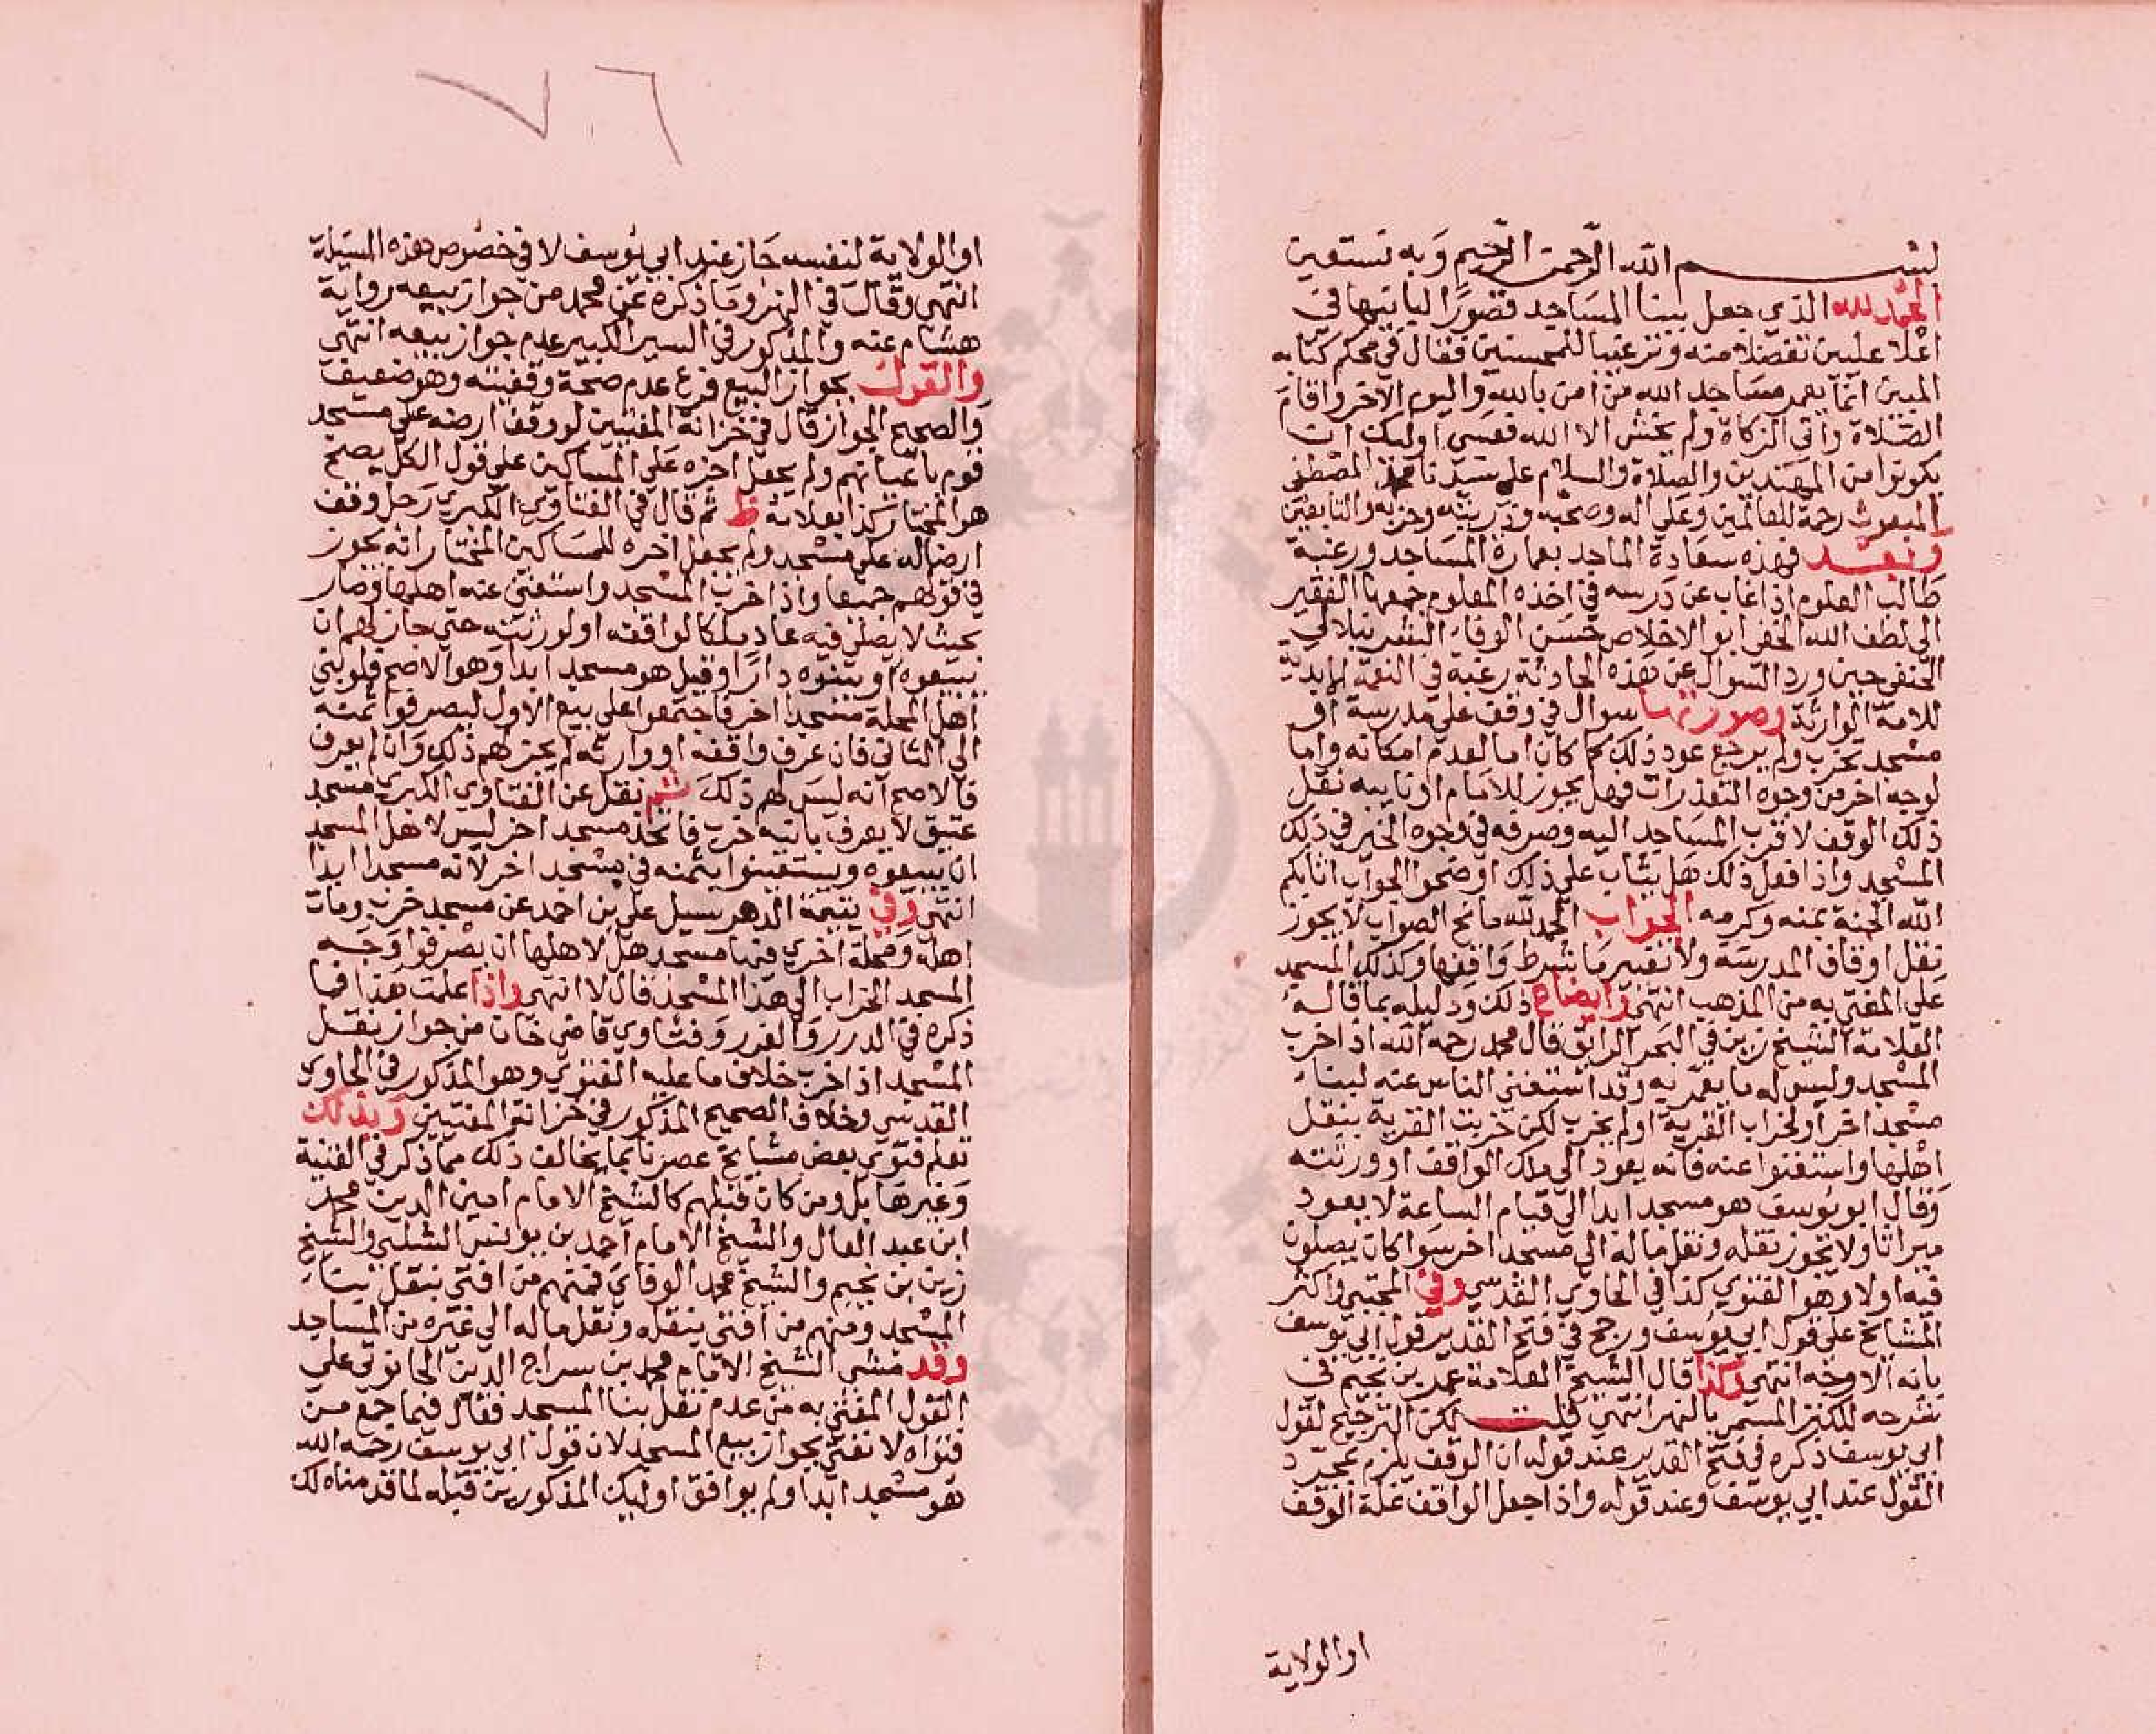 بسم الله الرحمن الرحيم وبه نستعين
الحمد لله الذي جعل بينا المساجد قصورا لبانيها في
اعلا عليين تفضلا منه وترغيبا للمحسنين فقال في محكم كتابه
المبين انما يعمر مساجد الله من امن بالله واليوم الاخر واقام
الصلاة واتى الزكاة ولم يخش الا الله فعسى اوليك ان
يكونوا من المهتدين والصلاة والسلام على سيدنا محمد المصطفى
المبعوث رحمة للعالمين وعلى اله وصحبه وذريته وحزبه والتابعين
وبعد فهذه سعادة الماجد بعمارة المساجد ورغبة
طالب العلوم اذا غاب عن درسه في اخذه المعلوم جمعها الفقير
الى لطف الله الخفي ابو الاخلاص حسن الوفاء الشرنبلالي
الحنفي حين ورد السوال عن هذه الحادثة رغبة في النعمة الابدية
للامة الوارثة وصورتها سوال في وقف على مدرسة او
مسجد تخرب ولم يرجع عود ذلك كما كان اما لعدم امكانه واما
لوجه اخر من وجوه التعذرات فهل يجوز للامام او نايبه نقل
ذلك الوقف لاقرب المساجد اليه وصرفه في وجوه الخير في ذلك
المسجد واذا فعل ذلك هل يثاب على ذلك اوضحوا الجواب اثابكم
الله الجنة بمنه وكرمه الجواب الحمد لله مانح الصواب لا يجوز
نقل اوقاف المدرسة ولا تغيير ما شرط واقفها وكذلك المسجد
على المفتى به من المذهب انتهى وايضاح ذلك ودليله بما قاله
العلامة الشيخ زين في البحر الرائق قال محمد رحمه الله اذا خرب
المسجد وليس له ما يعمر به وقد استغنى الناس عنه لبناء
مسجد اخر او لخراب القرية او لم يخرب لكن خربت القرية بنقل
اهلها واستغنوا عنه فانه يعود الى ملك الواقف او ورثته
وقال ابو يوسف هو مسجد ابدا الى قيام الساعة لا يعود
ميراثا ولا يجوز نقله ونقل ماله الى مسجد اخر سوا كان يصلون
فيه اولا وهو الفتوي كذا في الحاوي القدسي وفي المجتبى واكثر
المشايخ على قول ابي يوسف ورجح في فتح القدير قول ابي يوسف
بانه الاوجه انتهى وكذا قال الشيخ العلامة عمر بن نجيم في
شرحه للكنز المسمى بالنهر انتهى قلت لكن الترجيح لقول
ابي يوسف ذكره في فتح القدير عند قوله ان الوقف يلزم بمجرد
القول عند ابي يوسف وعند قوله واذا جعل الواقف غلة الوقف
او الولاية
٧٦
او الولاية لنفسه جاز عند ابي يوسف لا في خصوص هذه المسيلة
انتهى وقال في النهر وما ذكره عن محمد من جواز بيعه رواية
هشام عنه والمذكور في السير الكبير عدم جواز بيعه انتهى
والقول بجواز البيع فرع عدم صحة وقفيته وهو ضعيف
والصحيح الجواز قال في خزانة المفتيين لو وقف ارضه على مسجد
قوم باعيانهم ولم يجعل اخره على المساكين على قول الكل يصح
هو المختار كذا بعلامة ظ ثم قال في الفتاوي الكبري رجل وقف
ارضا له على مسجد ولم يجعل اخره للمساكين المختار انه يجوز
في قولهم جميعا واذا خرب المسجد واستغنى عنه اهلها وصار
بحيث لا يصلى فيه عاد ملكا لواقفه او لورثته حتى جاز لهم ان
يبيعوه او يبنوه دارا وقيل هو مسجد ابدا وهو الاصح فلو بنى
اهل المحلة مسجدا اخر فاجتمعوا على بيع الاول ليصرفوا ثمنه
الى الثاني فان عرف واقفه او وارثه لم يجز لهم ذلك وان لم يعرف
فالاصح انه ليس لهم ذلك ثم نقل عن الفتاوي الكبري مسجد
عتيق لا يعرف بانيه خرب فاتخذ مسجد اخر ليس لاهل المسجد
ان يبيعوه ويستعينوا بثمنه في مسجد اخر لانه مسجد ابدا
انتهى وفي يتيمة الدهر سيل علي بن احمد عن مسجد خرب ومات
اهله ومحلة اخرى فيها مسجد هل لاهلها ان يصرفوا وجه
المسجد الخراب الى هذا المسجد قال لا انتهى واذا علمت هذا فما
ذكره في الدرر والغرر وفتاوي قاضي خان من جواز نقل
المسجد اذا خرب خلاف ما عليه الفتوي وهو المذكور في الحاوي
القدسي وخلاف الصحيح المذكور في خزانة المفتيين وبذلك
تعلم فتوى بعض مشايخ عصرنا بما يخالف ذلك مما ذكر في القنية
وغيرها بل ومن كان قبلهم كالشيخ الامام امين الدين محمد
ابن عبد العال والشيخ الامام احمد بن يونس الشلبي والشيخ
زين بن نجيم والشيخ محمد الوفاي فمنهم من افتى بنقل بناء
المسجد ومنهم من افتى بنقله ونقل ماله الى غيره من المساجد
وقد مشى الشيخ الامام محمد بن سراج الدين الحانوتي على
القول المفتى به من عدم نقل بنا المسجد فقال فيما جمع من
فتواه لا نفتي بجواز بيع المسجد لان قول ابي يوسف رحمه الله
هو مسجد ابدا ولم يوافق اوليك المذكورين قبله لما قدمناه لك